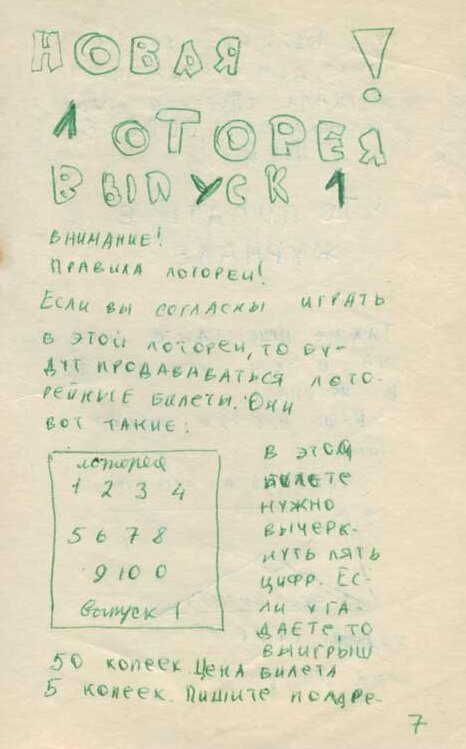 НОВАЯ !
ЛОТОРЕЯ
ВЫПУСК 1
ВНИМАНИЕ!
ПРАВИЛА ЛОТОРЕИ!
ЕСЛИ ВЫ СОГЛАСНЫ ИГРАТЬ
В ЭТОЙ ЛОТОРЕИ, ТО БУ-
ДУТ ПРОДАВАВАТЬСЯ ЛОТО-
РЕЙНЫЕ БИЛЕТЫ. ОНИ
ВОТ ТАКИЕ:
лоторея
1 2 3 4
5 6 7 8
9 10 0
выпуск 1
В ЭТОМ
БИЛЕТЕ
НУЖНО
ВЫЧЕРК-
НУТЬ ПЯТЬ
ЦИФР. ЕС-
ЛИ УГА-
ДАЕТЕ, ТО
ВЫИГРЫШ
50 КОПЕЕК. ЦЕНА БИЛЕТА
5 КОПЕЕК. ПИШИТЕ ПОЛДРЕ-
7